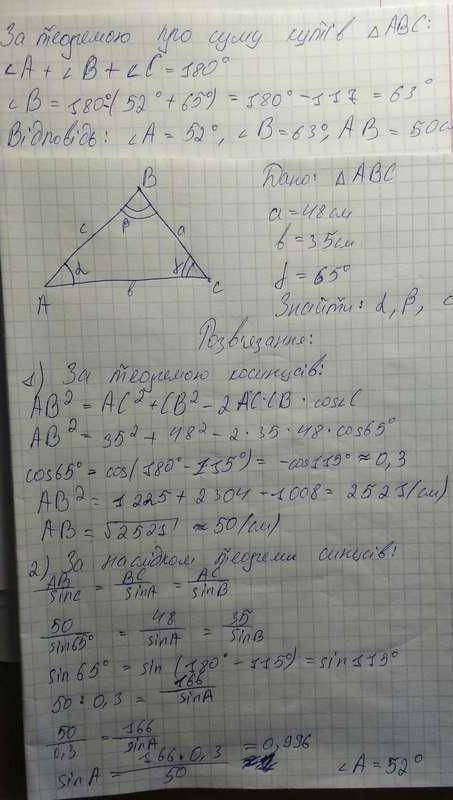 За теоремою про суму кутів △ABC:
∠A + ∠B + ∠C = 180°
∠B = 180°-(52° + 65°) = 180° - 117 = 63°
Відповідь: ∠A = 52°, ∠B = 63°, AB = 50см
B
β
c
a
α
γ
A
b
C
Дано: △ABC
a = 48 см
b = 35 см
γ = 65°
Знайти: α, β, c
Розв'язання:
1) За теоремою косинусів:
AB² = AC² + CB² - 2 AC·CB · cos C
AB² = 35² + 48² - 2 · 35 · 48 · cos65°
cos65° = cos(180° - 115°) = -cos115° ≈ 0,3
AB² = 1225 + 2304 - 1008 = 2521 (см)
AB = √2521 ≈ 50 (см)
2) За наслідком теореми синусів:
AB/sinC = BC/sinA = AC/sinB
50/sin65° = 48/sinA = 35/sinB
sin65° = sin (180° - 115°) = sin115°
50 : 0,3 = 166/sinA
50/0,3 = 166/sinA
sinA = 166 · 0,3/50 = 0,996
∠A = 52°